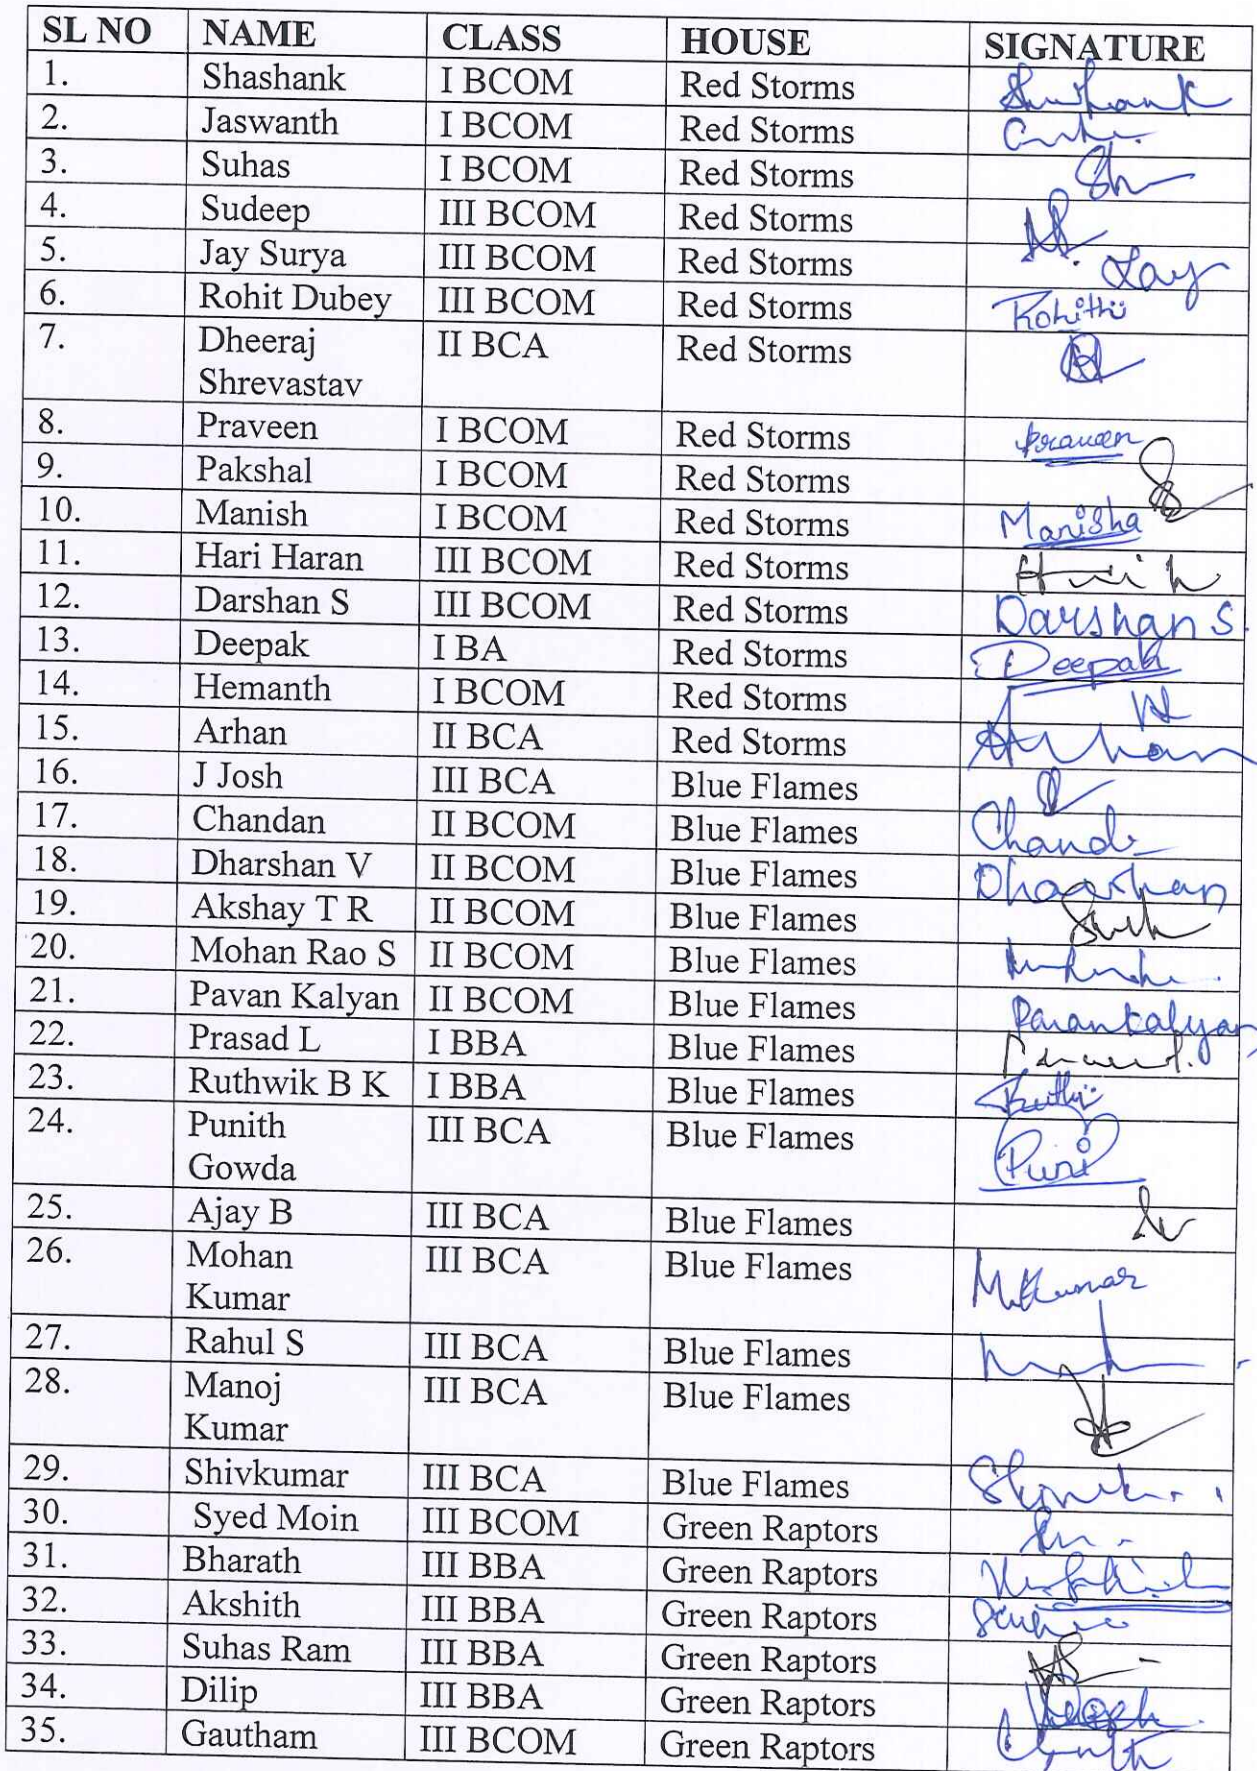 SL NO NAME CLASS HOUSE SIGNATURE
1. Shashank I BCOM Red Storms Shashank
2. Jaswanth I BCOM Red Storms
3. Suhas I BCOM Red Storms
4. Sudeep III BCOM Red Storms
5. Jay Surya III BCOM Red Storms Jay
6. Rohit Dubey III BCOM Red Storms Rohith
7. Dheeraj II BCA Red Storms
Shrevastav
8. Praveen I BCOM Red Storms Praveen
9. Pakshal I BCOM Red Storms
10. Manish I BCOM Red Storms Manisha
11. Hari Haran III BCOM Red Storms
12. Darshan S III BCOM Red Storms Darshan S.
13. Deepak I BA Red Storms Deepak
14. Hemanth I BCOM Red Storms
15. Arhan II BCA Red Storms Arhan
16. J Josh III BCA Blue Flames
17. Chandan II BCOM Blue Flames
18. Dharshan V II BCOM Blue Flames Dharshan
19. Akshay T R II BCOM Blue Flames
20. Mohan Rao S II BCOM Blue Flames
21. Pavan Kalyan II BCOM Blue Flames Pavankalyan
22. Prasad L I BBA Blue Flames
23. Ruthwik B K I BBA Blue Flames
24. Punith III BCA Blue Flames Puni
Gowda
25. Ajay B III BCA Blue Flames
26. Mohan III BCA Blue Flames M.Kumar
Kumar
27. Rahul S III BCA Blue Flames
28. Manoj III BCA Blue Flames
Kumar
29. Shivkumar III BCA Blue Flames
30. Syed Moin III BCOM Green Raptors
31. Bharath III BBA Green Raptors
32. Akshith III BBA Green Raptors
33. Suhas Ram III BBA Green Raptors
34. Dilip III BBA Green Raptors
35. Gautham III BCOM Green Raptors